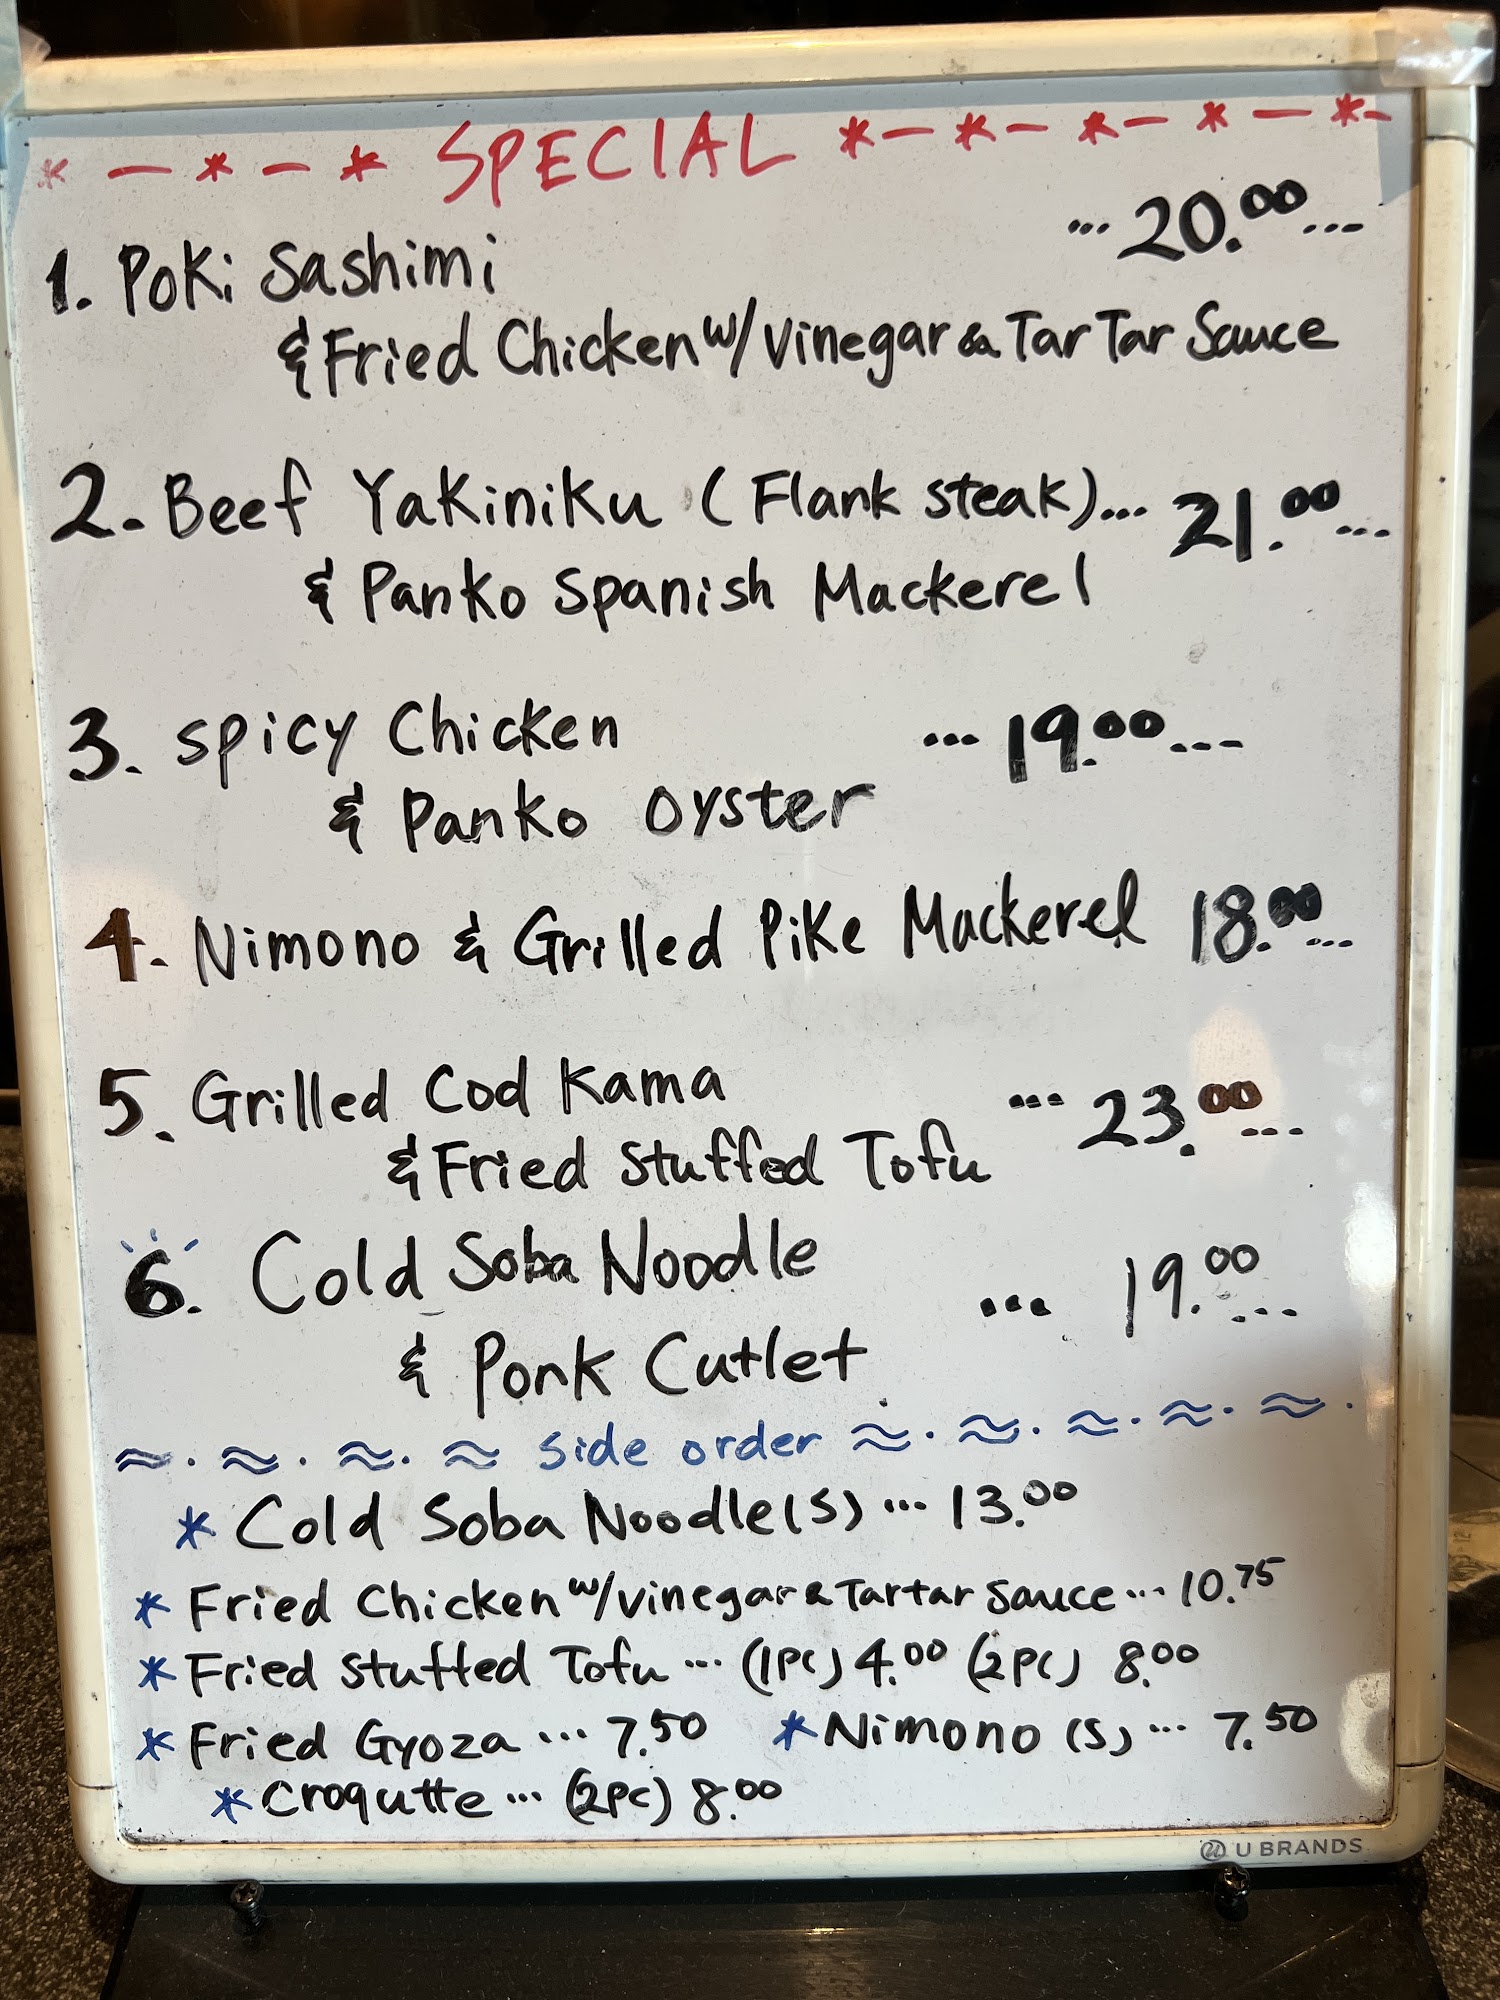 * - * - * SPECIAL * - * - * - * - * -
1. Poki Sashimi ... 20.00 ...
& Fried Chicken w/ Vinegar & Tar Tar Sauce
2. Beef Yakiniku (Flank steak)... 21.00 ...
& Panko Spanish Mackerel
3. spicy Chicken ... 19.00 ...
& Panko Oyster
4. Nimono & Grilled Pike Mackerel 18.00 ...
5. Grilled Cod Kama ... 23.00 ...
& Fried Stuffed Tofu
6. Cold Soba Noodle ... 19.00 ...
& Pork Cutlet
≈ · ≈ · ≈ · ≈ side order ≈ · ≈ · ≈ · ≈ · ≈ ·
* Cold Soba Noodle(S) ... 13.00
* Fried Chicken w/ vinegar & Tartar Sauce ... 10.75
* Fried Stuffed Tofu ... (1PC) 4.00 (2PC) 8.00
* Fried Gyoza ... 7.50 * Nimono (S) ... 7.50
* Croqutte ... (2PC) 8.00
U BRANDS